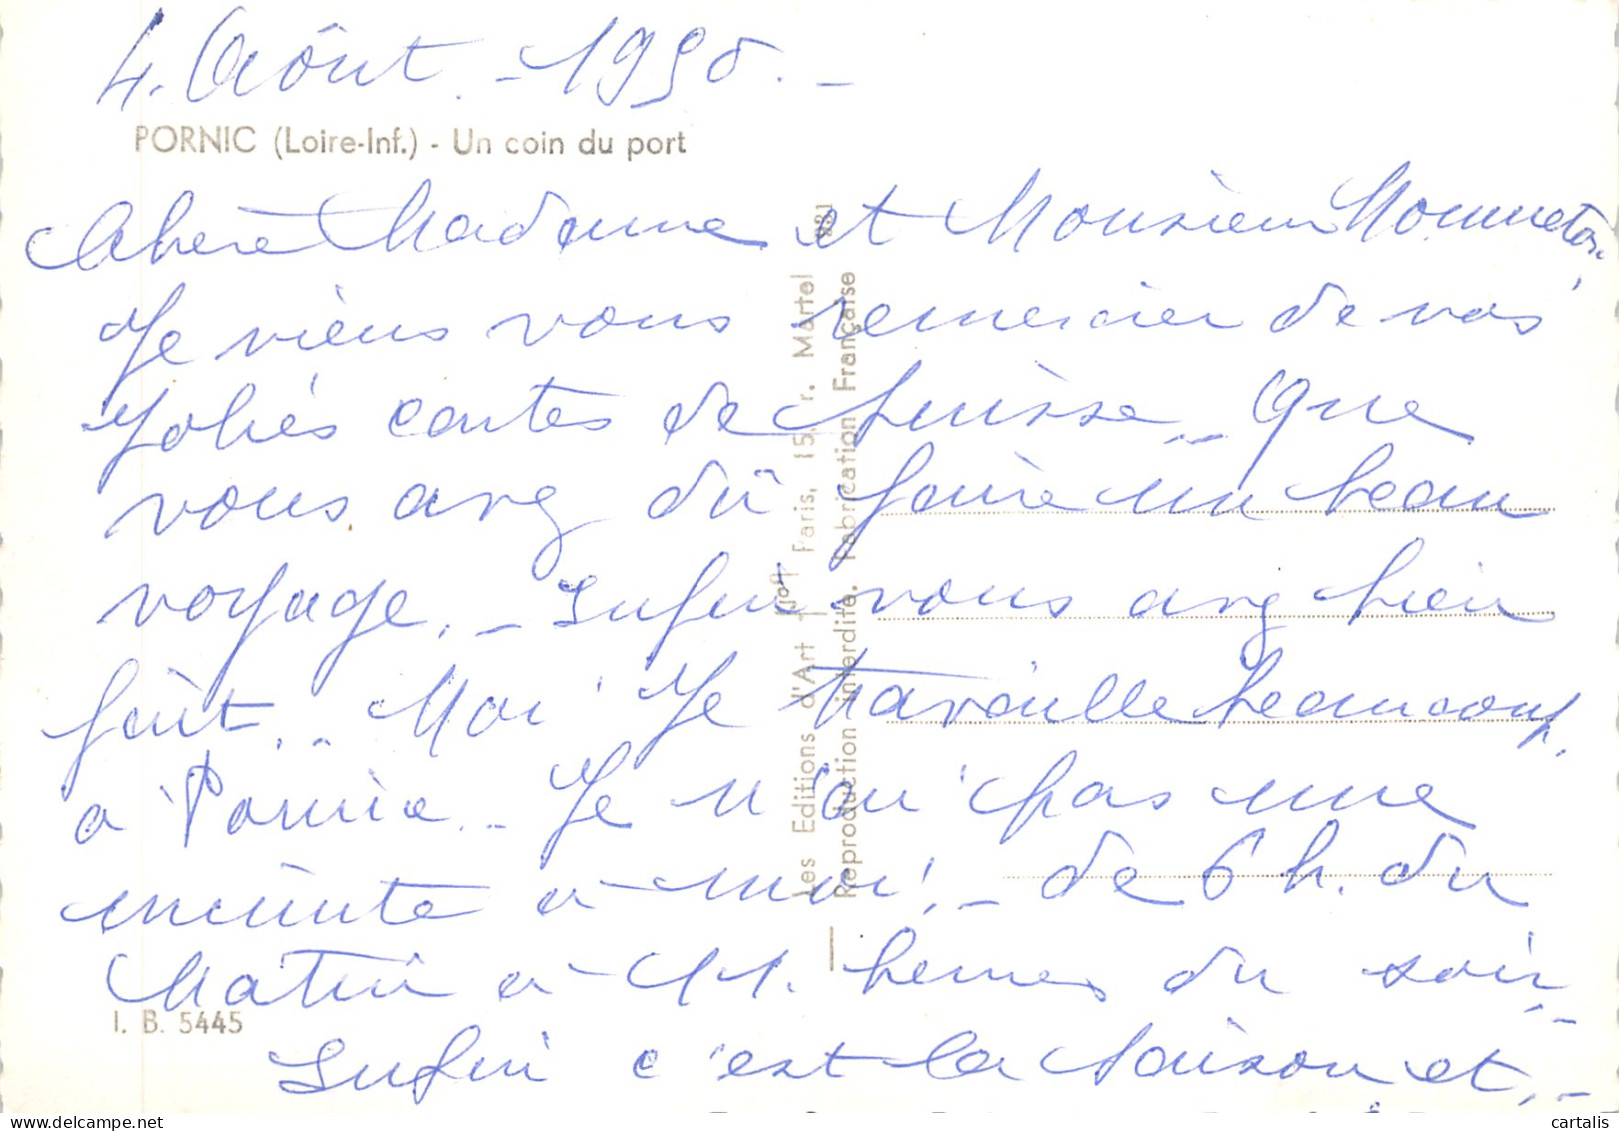 4. Aôut. - 1950. -
PORNIC (Loire-Inf.) - Un coin du port
Chère Madame et Monsieur Mommeton
Je viens vous remercier de vos
Jolies cartes de Suisse -- Que
vous avez dû faire un beau
voyage. - Enfin vous avez bien
fait. -- Moi Je travaille beaucoup.
à Pornic -- Je n'ai pas une
minute à moi. - de 6 h. du
Matin à 11. heures du soir. -
Enfin c'est la Saison et. -
Les Editions d'Art Paris, 15, r. Martel
Reproduction interdite. Fabrication Française
I. B. 5445
cartalis
delcampe.net